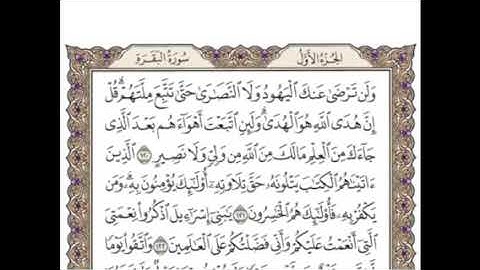 سُورَةُ البَقَرَةِ الجُزْءُ الأَوَّلُ
وَلَن تَرْضَىٰ عَنكَ الْيَهُودُ وَلَا النَّصَارَىٰ حَتَّىٰ تَتَّبِعَ مِلَّتَهُمْ ۗ قُلْ
إِنَّ هُدَى اللَّهِ هُوَ الْهُدَىٰ ۗ وَلَئِنِ اتَّبَعْتَ أَهْوَاءَهُم بَعْدَ الَّذِي
جَاءَكَ مِنَ الْعِلْمِ مَا لَكَ مِنَ اللَّهِ مِن وَلِيٍّ وَلَا نَصِيرٍ ١٢٠ الَّذِينَ
ءَاتَيْنَاهُمُ الْكِتَابَ يَتْلُونَهُ حَقَّ تِلَاوَتِهِ أُولَٰئِكَ يُؤْمِنُونَ بِهِ ۗ وَمَن
يَكْفُرْ بِهِ فَأُولَٰئِكَ هُمُ الْخَاسِرُونَ ١٢١ يَا بَنِي إِسْرَائِيلَ اذْكُرُوا نِعْمَتِيَ
الَّتِي أَنْعَمْتُ عَلَيْكُمْ وَأَنِّي فَضَّلْتُكُمْ عَلَى الْعَالَمِينَ ١٢٢ وَاتَّقُوا يَوْمًا